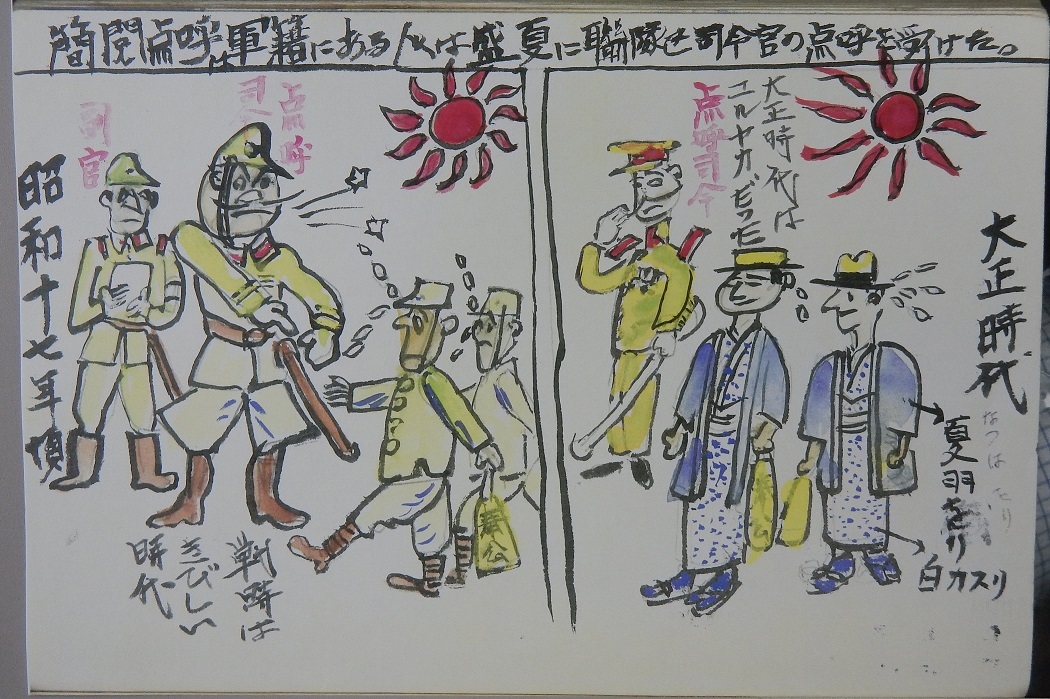 簡閲点呼は軍籍にある人は盛夏に聯隊せ司令官の点呼を受けた。
大正時代
大正時代は
エルヤカだった
点呼司令
なつは
夏羽をり
白カスリ
点呼
司官
昭和十七年頃
奉公
戦時は
きびしい
時代